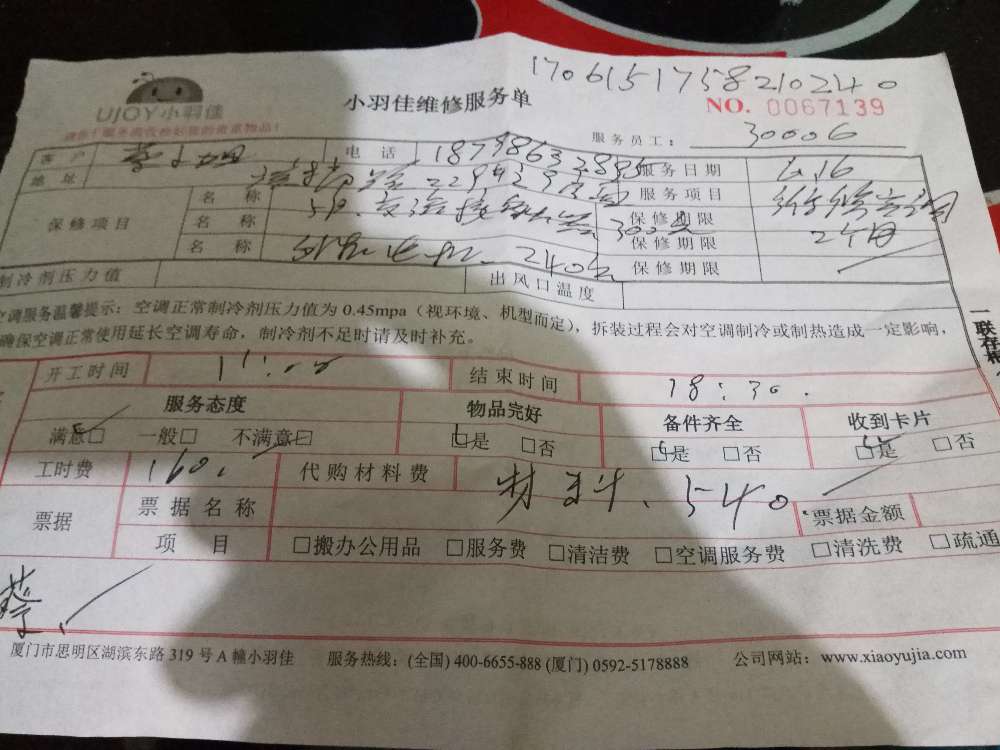 170615175821O240
UJOY小羽佳 小羽佳维修服务单 NO. 0067139
服务员工: 30006
客户 蔡小姐 电话 服务日期 6.16
地址 服务项目
保修项目 名称 保修期限 2个月
名称 保修期限
名称 240元 保修期限
制冷剂压力值 出风口温度
空调服务温馨提示：空调正常制冷剂压力值为 0.45mpa（视环境、机型而定），拆装过程会对空调制冷或制热造成一定影响，
确保空调正常使用延长空调寿命，制冷剂不足时请及时补充。
一联存根
开工时间 结束时间 18:30.
服务态度 物品完好 备件齐全 收到卡片
满意□ 一般□ 不满意□ □是 □否 □是 □否 □是 □否
工时费 160. 代购材料费 材料、540
票据 票据名称 票据金额
项目 □搬办公用品 □服务费 □清洁费 □空调服务费 □清洗费 □疏通
蔡、
厦门市思明区湖滨东路 319 号 A 幢小羽佳 服务热线：(全国) 400-6655-888 (厦门) 0592-5178888 公司网站：www.xiaoyujia.com